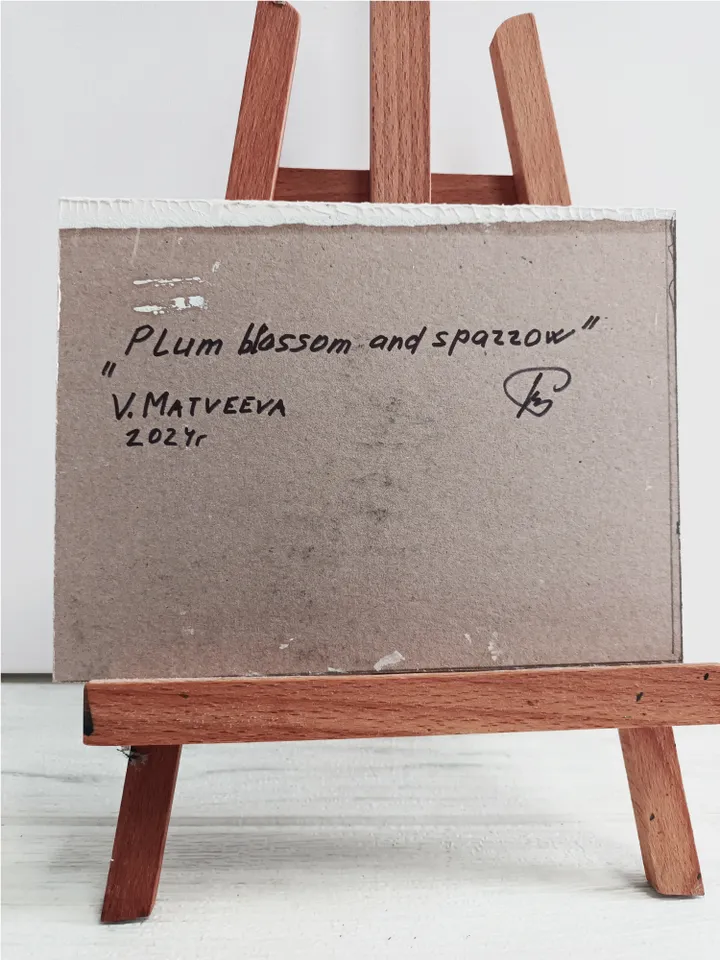 "Plum blossom and sparrow"
V. MATVEEVA
2024г